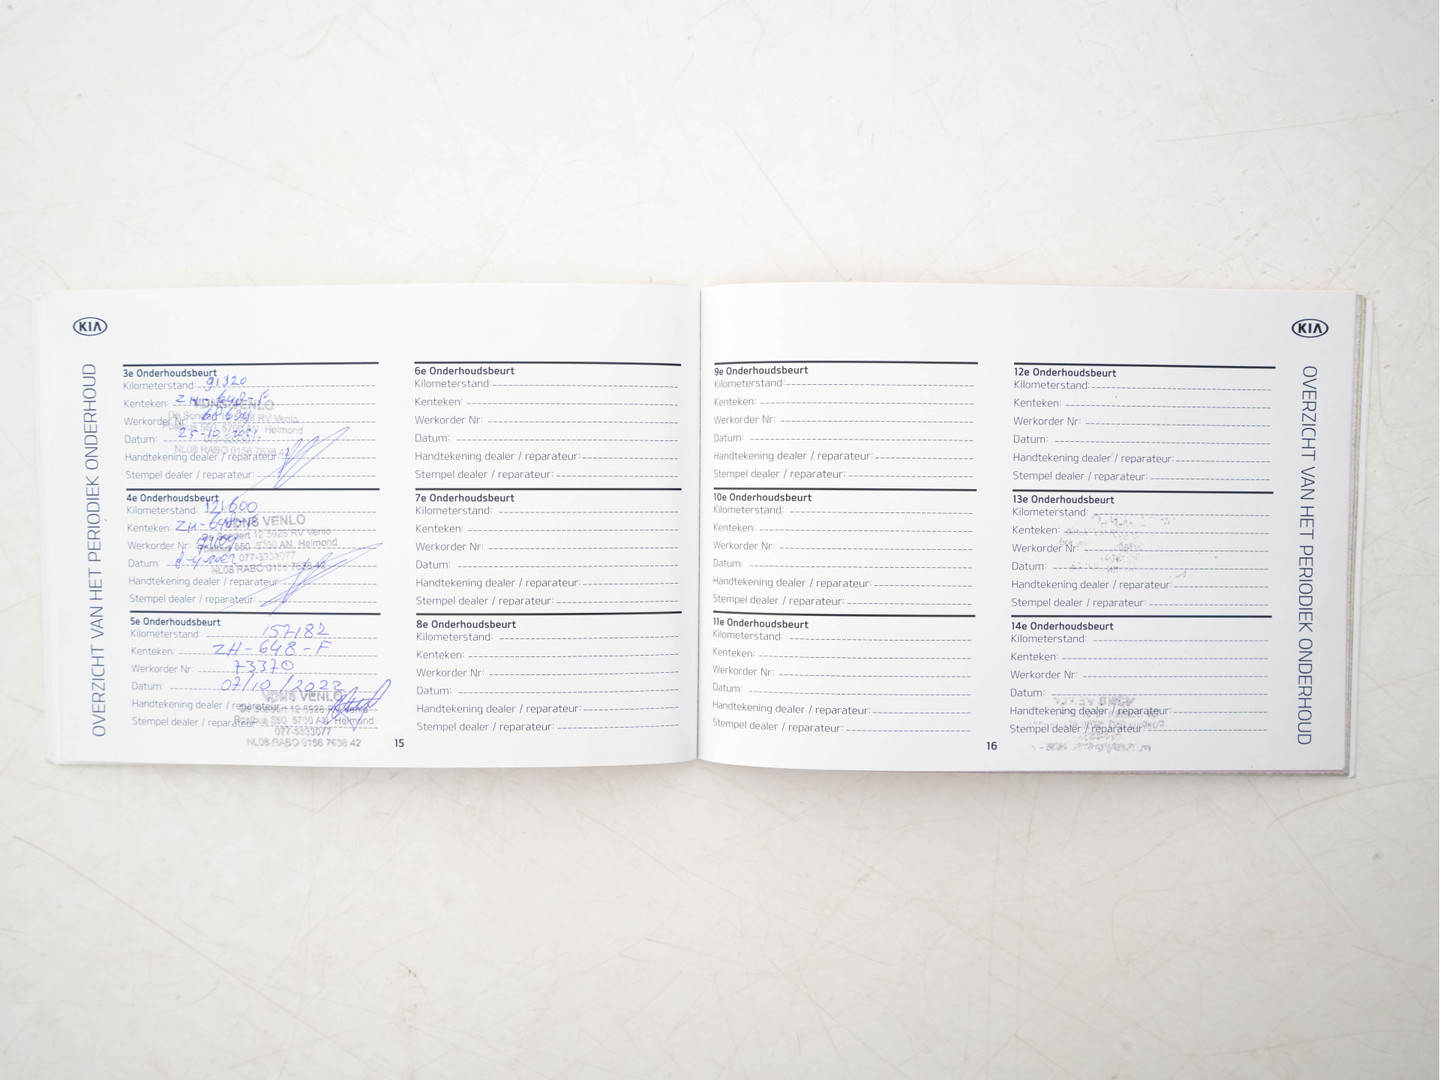 KIA
OVERZICHT VAN HET PERIODIEK ONDERHOUD
3e Onderhoudsbeurt
Kilometerstand: 91320
Kenteken: ZH-648-F
Werkorder Nr:
Datum: 25-10
Handtekening dealer / reparateur:
Stempel dealer / reparateur:
VDNS VENLO
De Sondert 12 5928 RV Venlo
Postbus 550 5700 AN Helmond
077-3333077
NL08 RABO 0156 7638 42
4e Onderhoudsbeurt
Kilometerstand: 121600
Kenteken: ZH-648-F
Werkorder Nr:
Datum:
Handtekening dealer / reparateur:
Stempel dealer / reparateur:
VDNS VENLO
De Sondert 12 5928 RV Venlo
Postbus 550 5700 AN Helmond
077-3333077
NL08 RABO 0156 7638 42
5e Onderhoudsbeurt
Kilometerstand: 157182
Kenteken: ZH-648-F
Werkorder Nr: 73370
Datum: 07/10/2022
Handtekening dealer / reparateur:
Stempel dealer / reparateur:
VDNS VENLO
De Sondert 12 5928 RV Venlo
Postbus 550 5700 AN Helmond
077-3333077
NL08 RABO 0156 7638 42
6e Onderhoudsbeurt
Kilometerstand:
Kenteken:
Werkorder Nr:
Datum:
Handtekening dealer / reparateur:
Stempel dealer / reparateur:
7e Onderhoudsbeurt
Kilometerstand:
Kenteken:
Werkorder Nr:
Datum:
Handtekening dealer / reparateur:
Stempel dealer / reparateur:
8e Onderhoudsbeurt
Kilometerstand:
Kenteken:
Werkorder Nr:
Datum:
Handtekening dealer / reparateur:
Stempel dealer / reparateur:
15
9e Onderhoudsbeurt
Kilometerstand:
Kenteken:
Werkorder Nr:
Datum:
Handtekening dealer / reparateur:
Stempel dealer / reparateur:
10e Onderhoudsbeurt
Kilometerstand:
Kenteken:
Werkorder Nr:
Datum:
Handtekening dealer / reparateur:
Stempel dealer / reparateur:
11e Onderhoudsbeurt
Kilometerstand:
Kenteken:
Werkorder Nr:
Datum:
Handtekening dealer / reparateur:
Stempel dealer / reparateur:
12e Onderhoudsbeurt
Kilometerstand:
Kenteken:
Werkorder Nr:
Datum:
Handtekening dealer / reparateur:
Stempel dealer / reparateur:
13e Onderhoudsbeurt
Kilometerstand:
Kenteken:
Werkorder Nr:
Datum:
Handtekening dealer / reparateur:
Stempel dealer / reparateur:
14e Onderhoudsbeurt
Kilometerstand:
Kenteken:
Werkorder Nr:
Datum:
Handtekening dealer / reparateur:
Stempel dealer / reparateur:
16
KIA
OVERZICHT VAN HET PERIODIEK ONDERHOUD